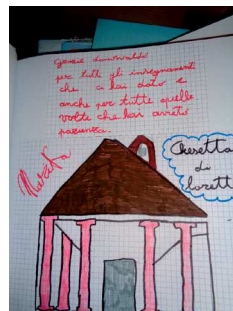 grazie
per tutti gli insegnamenti
che ci hai dato e
anche per tutte quelle
volte che hai avuto
pazienza.
Casetta
di